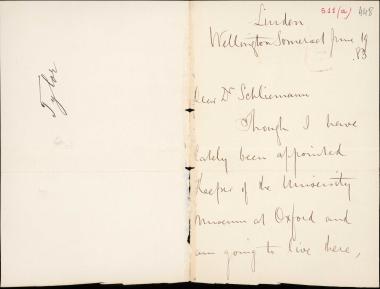 Tylor
511(a) 448
Linden
Wellington Somerset June 19
.83
Dear Dr Schliemann
Though I have
lately been appointed
Keeper of the University
Museum at Oxford and
am going to live there,